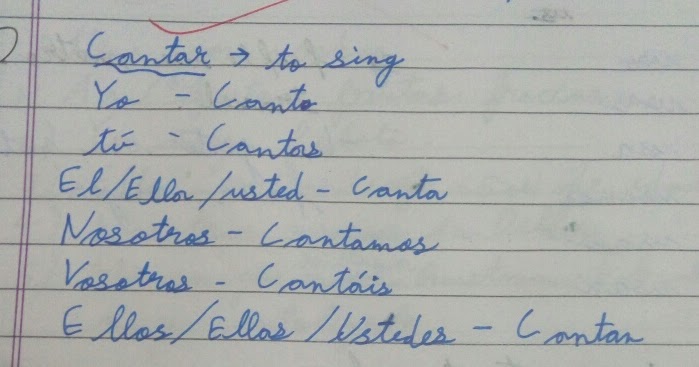 Cantar → to sing
Yo - Canto
tú - Cantas
El/Ella/usted - Canta
Nosotros - Cantamos
Vosotros - Cantáis
Ellos/Ellas/Ustedes - Cantan